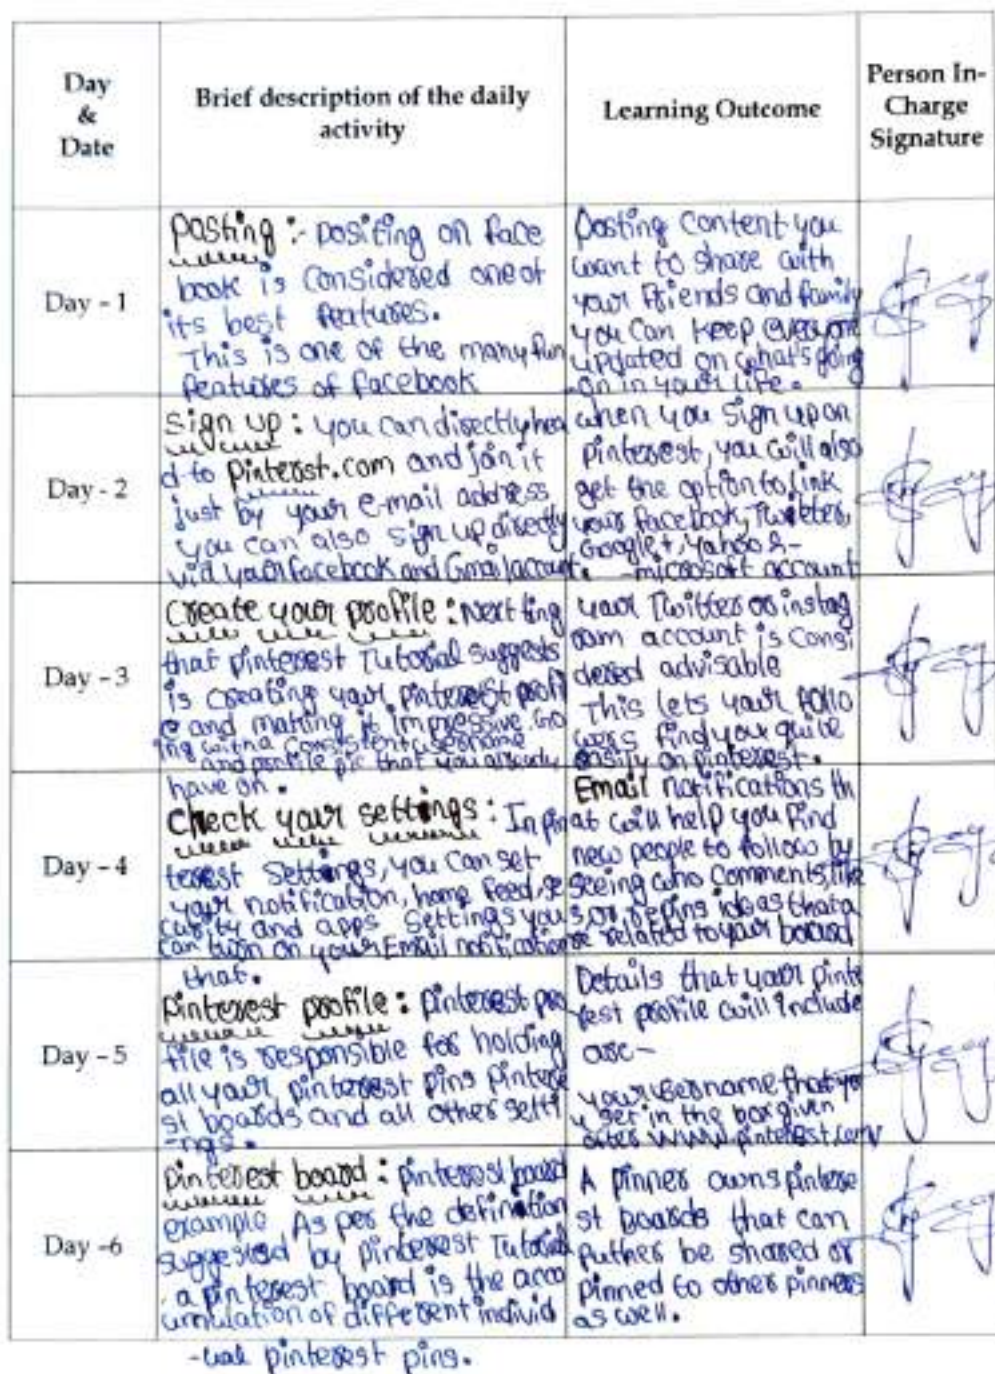 Day
&
Date
Brief description of the daily
activity
Learning Outcome
Person In-
Charge
Signature
Day - 1
Posting :- Positing on Face
book is considered one of
its best features.
This is one of the many fun
features of facebook
Posting content you
want to share with
your Friends and family
you can keep everyone
updated on what's going
on in your life.
Day - 2
Sign up : you can directly hea
d to pinterst.com and join it
just by your e-mail address
you can also sign up directly
via your facebook and Gmail account.
when you sign up on
pinterest, you will also
get the option to link
your facebook, Twitter,
Google+, yahoo &-
-microsoft account
Day - 3
Create your profile : Next ting
that pinterest Tutorial suggests
is creating your pinterest profil
e and making it impressive. Go
ing with a consistent username
and profile pic that you already
have on.
your Twitter or instag
ram account is consi
dered advisable
This lets your follo
wers find you quite
easily on pinterest.
Day - 4
Check your settings : In pin
terest settings, you can set
your notification, home feed, se
curity and apps settings you
can turn on your Email notification
that.
Email notifications th
at will help you find
new people to follow by
seeing who comments, like
s, or repins ideas that a
re related to your board
Day - 5
Pinterest profile : pinterest pro
file is responsible for holding
all your pinterest pins pintere
st boards and all other setti
-ngs.
Details that your pinte
rest profile will include
are-
your username that yo
u set in the box given
after www.pinterest.com/
Day -6
pinterest board : pinterest board
example As per the defination
suggested by pinterest Tutorial
a pinterest board is the accu
umulation of different individ
-ual pinterest pins.
A pinner owns pintere
st boards that can
futher be shared or
pinned to other pinners
as well.